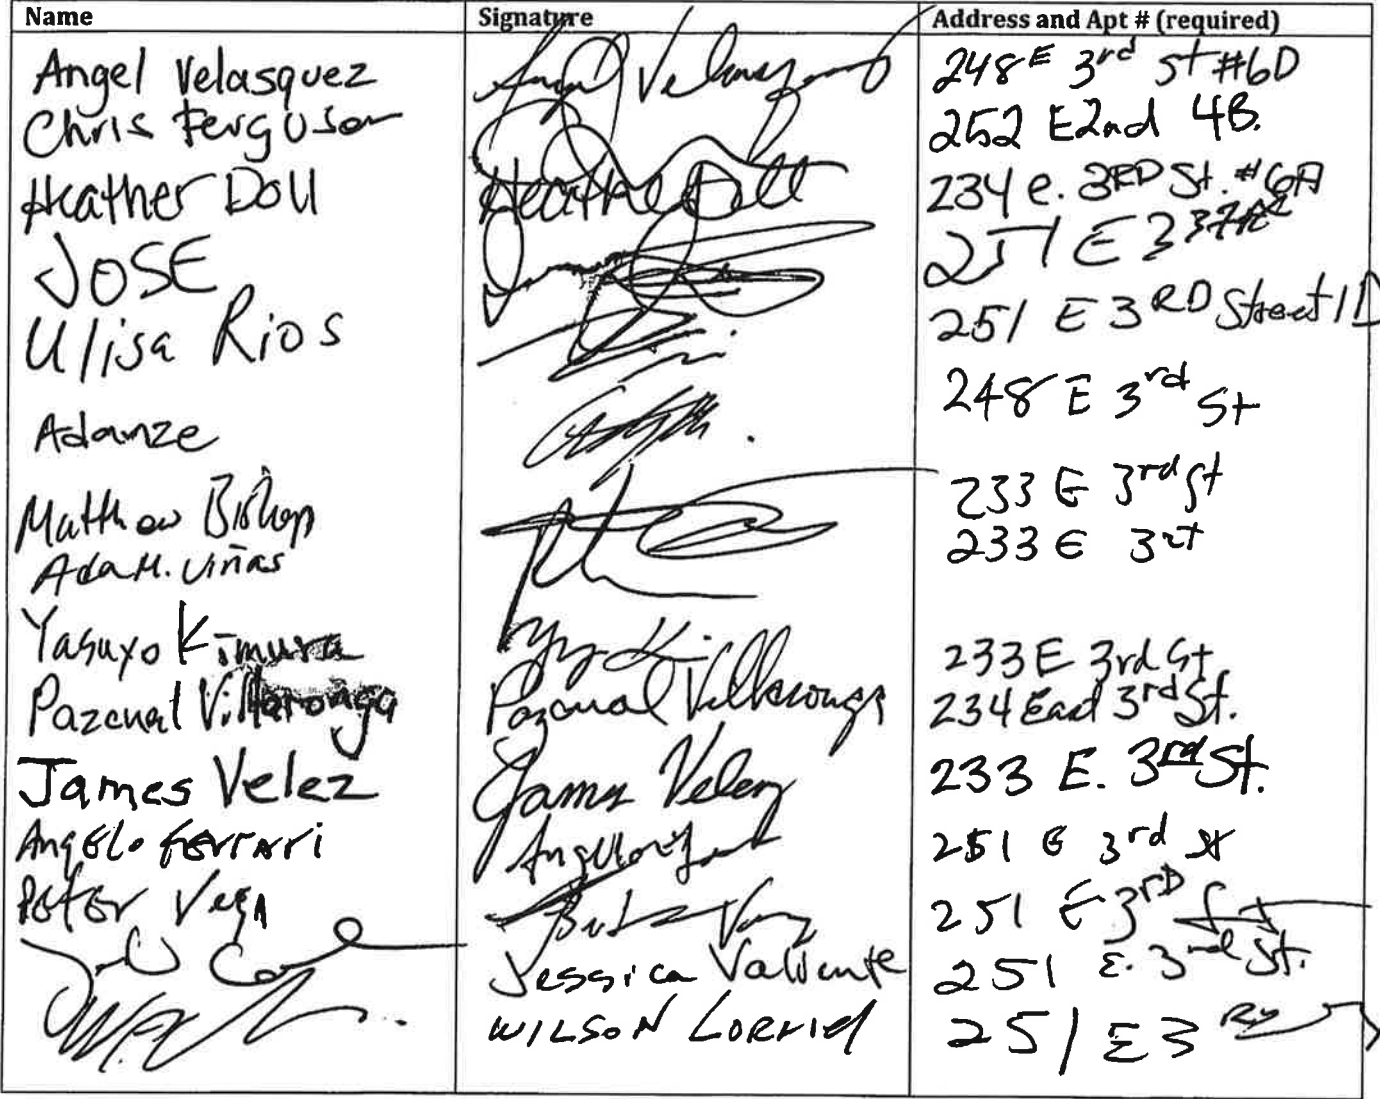 Name Signature Address and Apt # (required)
Angel Velasquez Angel Velasquez 248 E 3rd St #6D
Chris Ferguson 252 E2nd 4B.
Heather Doll Heather Doll 234 e. 3RD St. #6A
JOSE 251 E 3
Ulisa Rios 251 E 3RD Street 1D
Adanze 248 E 3rd St
Matthew Bishop 233 E 3rd St
Ada M. Viñas 233 E 3rd
Yasuyo Kimura 233 E 3rd St
Pazcual Villaronga Pazcual Villaronga 234 East 3rd St.
James Velez James Velez 233 E. 3rd St.
Angelo Ferrari 251 E 3rd St
Peter Vega 251 E 3RD
Jessica Valiente 251 E. 3rd St.
WILSON 251 E 3